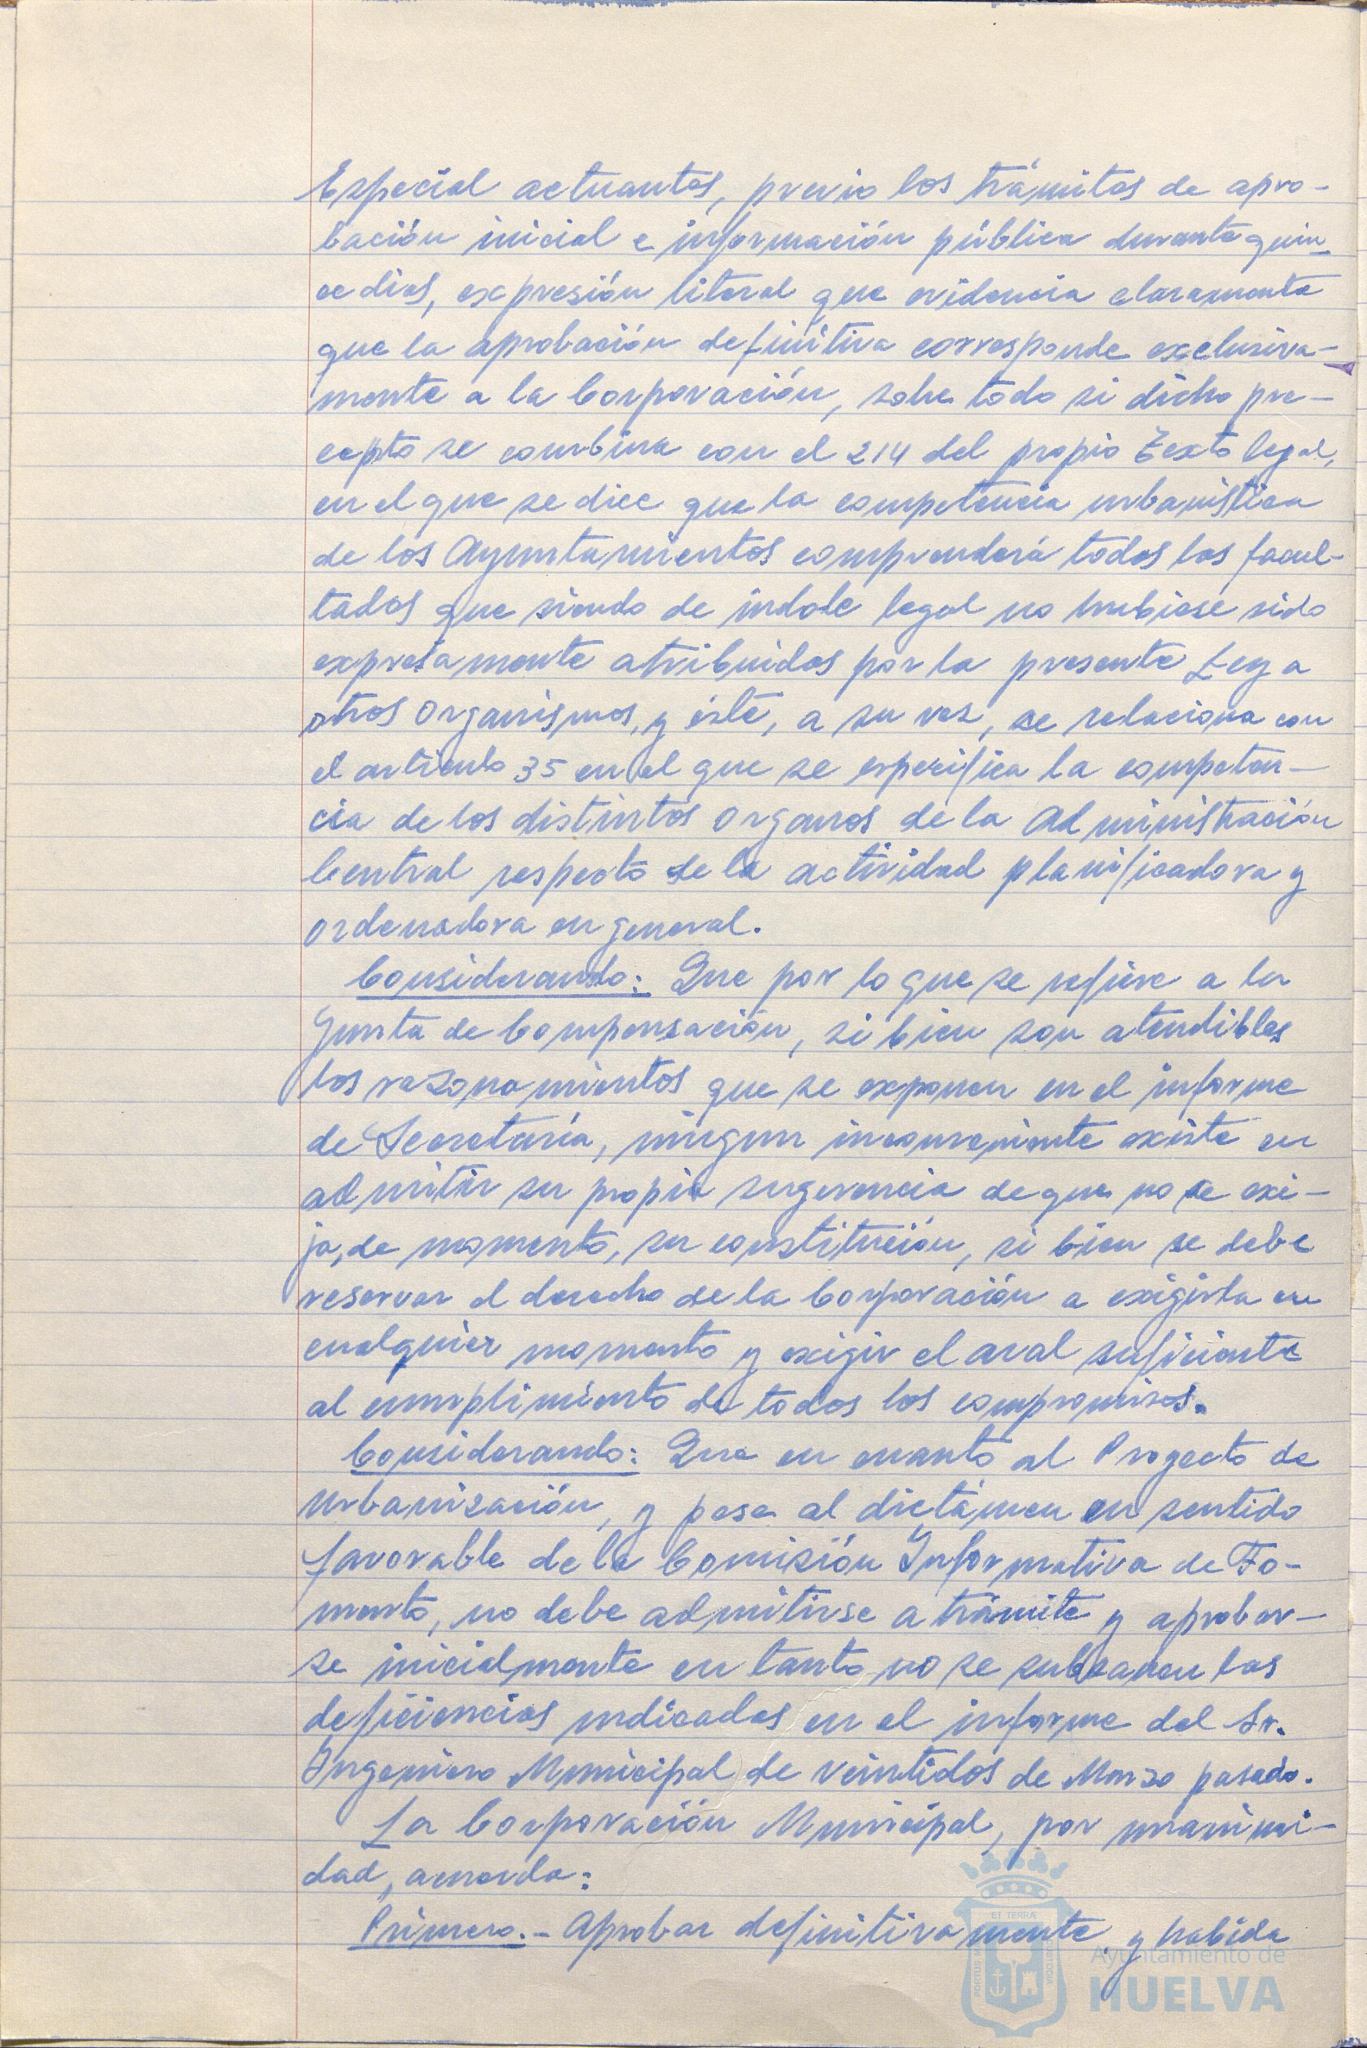 Especial actuantes, previo los trámites de apro-
bación inicial e información pública durante quin-
ce dias, expresión literal que evidencia claramente
que la aprobación definitiva corresponde exclusiva-
mente a la Corporación, sobre todo si dicho pre-
cepto se combina con el 214 del propio Texto legal,
en el que se dice que la competencia urbanística
de los Ayuntamientos comprenderá todas las facul-
tades que siendo de índole legal no hubiese sido
expresamente atribuidas por la presente Ley a
otros Organismos, y éste, a su vez, se relaciona con
el artículo 35 en el que se especifica la competen-
cia de los distintos Organos de la Administración
Central respecto de la actividad planificadora y
ordenadora en general.
Considerando: Que por lo que se refiere a la
Junta de Compensación, si bien son atendibles
los razonamientos que se exponen en el informe
de Secretaría, ningun inconveniente existe en
admitir su propia sugerencia de que no se exi-
ja, de momento, su constitución, si bien se debe
reservar el derecho de la Corporación a exigirla en
cualquier momento y exigir el aval suficiente
al cumplimiento de todos los compromisos.
Considerando: Que en cuanto al Proyecto de
Urbanización, y pese al dictámen en sentido
favorable de la Comisión Informativa de Fo-
mento, no debe admitirse a trámite y aprobar-
se inicialmente en tanto no se subsanen las
deficiencias indicadas en el informe del Sr.
Ingeniero Municipal de veintidos de Marzo pasado.
La Corporación Municipal, por unanimi-
dad, acuerda:
Primero.- Aprobar definitivamente, y habida
ET TERRA
Ayuntamiento de
HUELVA